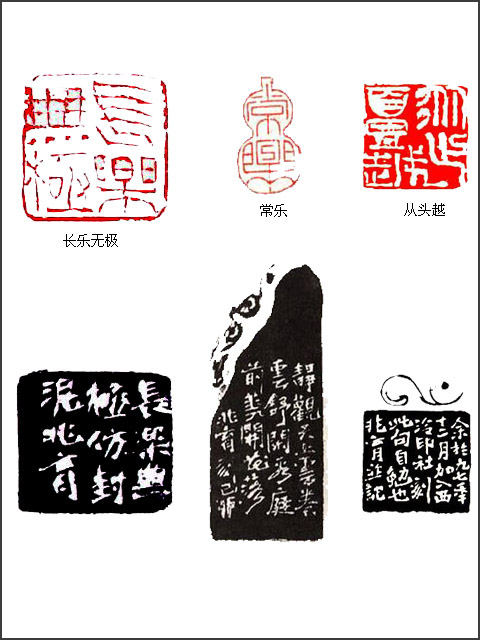 長樂
無極
常樂
长乐无极
常乐
从头越
長樂無
極仿封
泥兆育
靜觀天上雲卷
雲舒閑看庭
前花開花落
兆育
余於九七年
十二月加入西
泠印社刻
此句自勉也
兆育並記